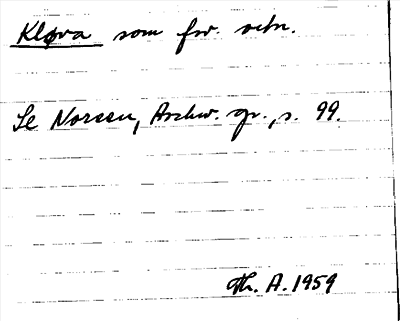 Kløva som fsv. ortn.
Se Noreen, Arkiv. gr., s. 99.
Th. A. 1959